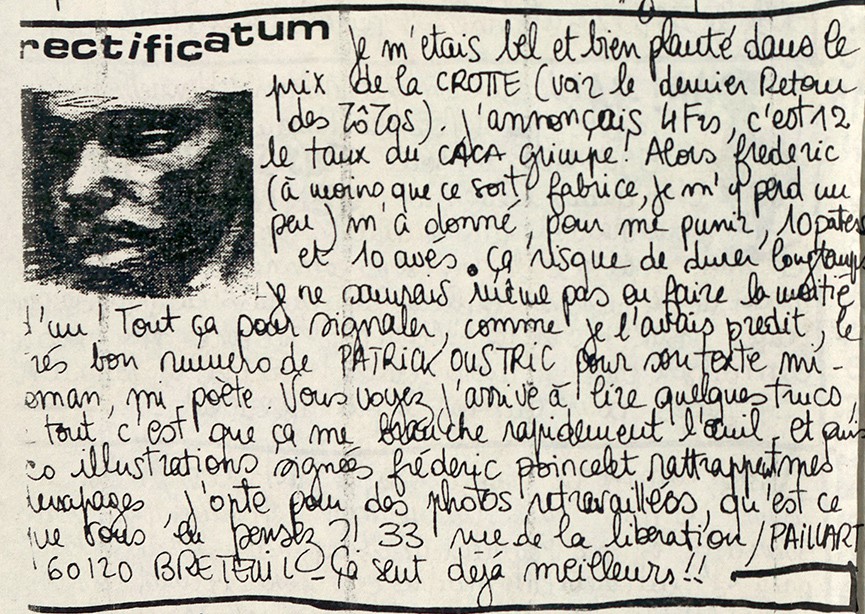 rectificatum
Je m'étais bel et bien planté dans le
prix de la CROTTE (voir le dernier Retour
des ZôZos). J'annonçais 4Frs, c'est 12
le taux du CACA grimpe! Alors frederic
(à moins que ce soit fabrice, je m'y perd un
peu) m'a donné, pour me punir, 10 paters
et 10 avés. Ça risque de durer longtemps
je ne saurais même pas en faire la moitié
d'un! Tout ça pour signaler, comme je l'avais predit, le
rés bon numero de PATRICK OUSTRIC pour son texte mi-
oman, mi poète. Vous voyez, j'arrive à lire quelques trucs,
tout c'est que ça me branche rapidement l'œuil, et puis
illustrations signées fréderic poincelet rattrappent mes
j'opte pour des photos retravaillées, qu'est ce
que vous en pensez?! 33 rue de la liberation/PAILLART
60120 BRETEUIL - Ça sent déjà meilleurs!!